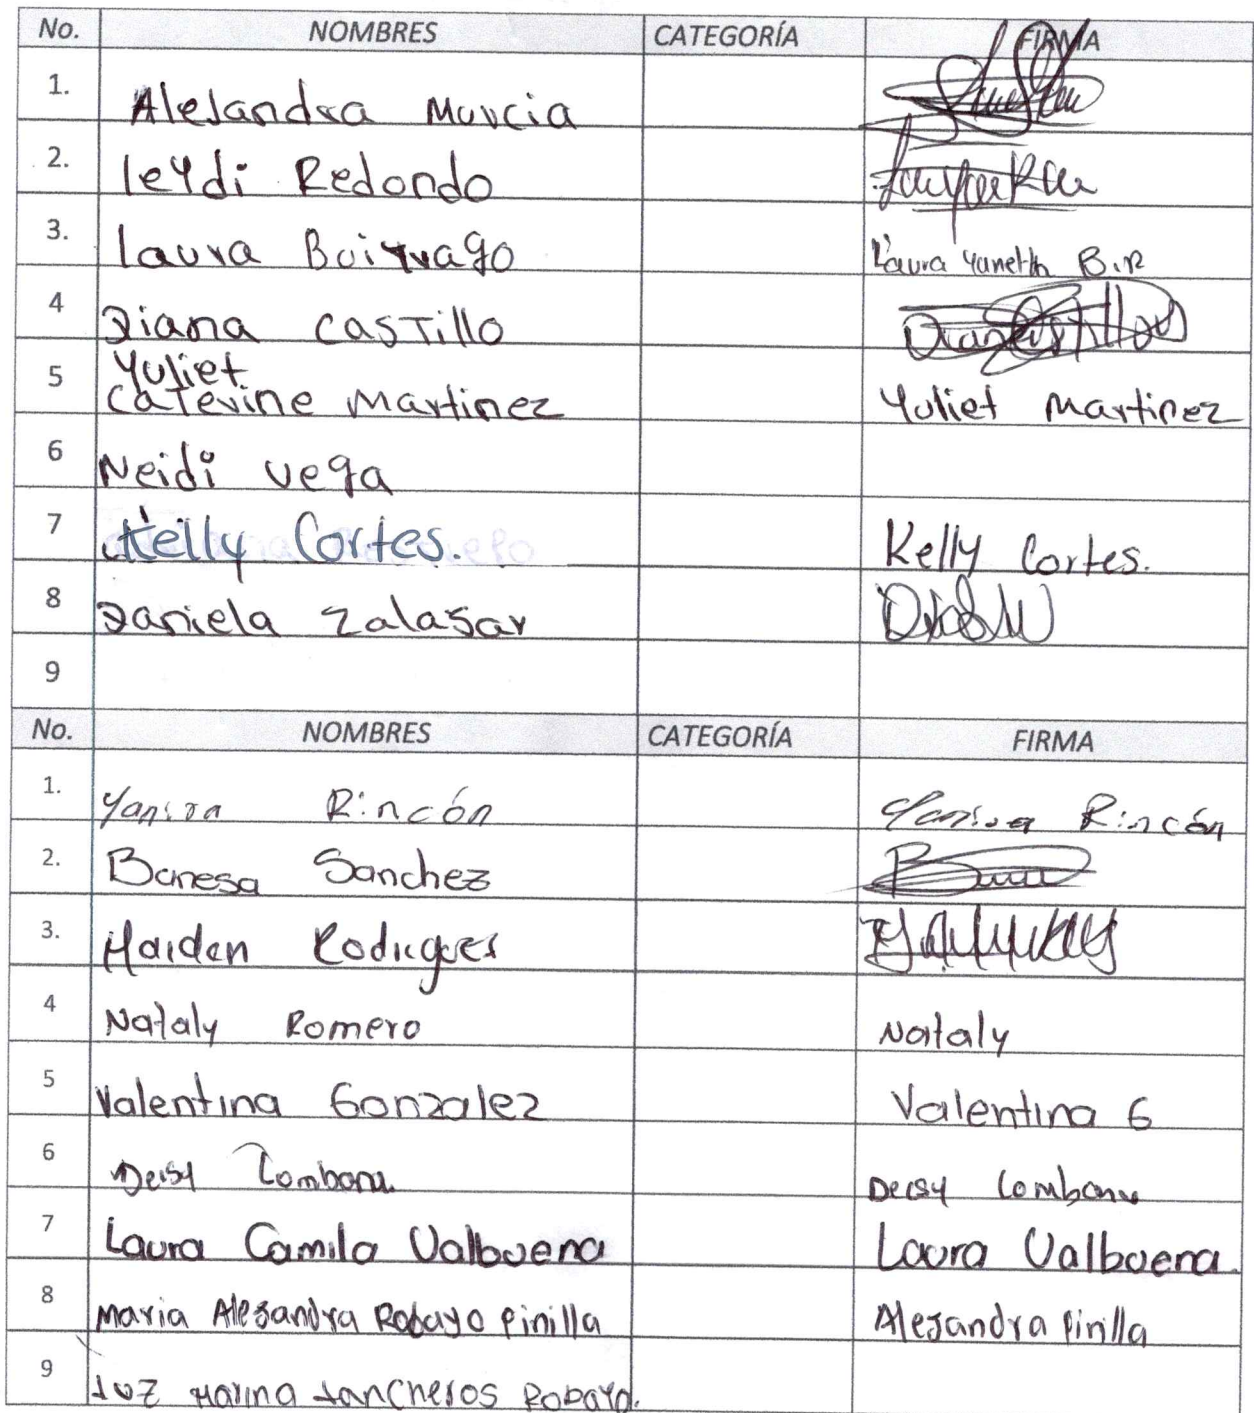 No. NOMBRES CATEGORÍA FIRMA
1. Alejandra Murcia
2. leydi Redondo
3. laura Buitrago Laura Yaneth B.R
4 Diana CASTillo
Yuliet
5 CaTerine Martinez Yuliet Martinez
6 Neidi vega
7 Kelly Cortes. Kelly Cortes.
8 Daniela Zalasar
9
No. NOMBRES CATEGORÍA FIRMA
1. Yanira Rincón Yanira Rincón
2. Banesa Sanchez
3. Haiden Rodrigues
4 Nataly Romero Nataly
5 Valentina Gonzalez Valentina G
6 Deisy Lombana Deisy Lombana
7 Laura Camila Valbuena Laura Valbuena.
8 Maria Alejandra Robayo Pinilla Alejandra Pinilla
9 Luz Marina Lancheros Robayo.